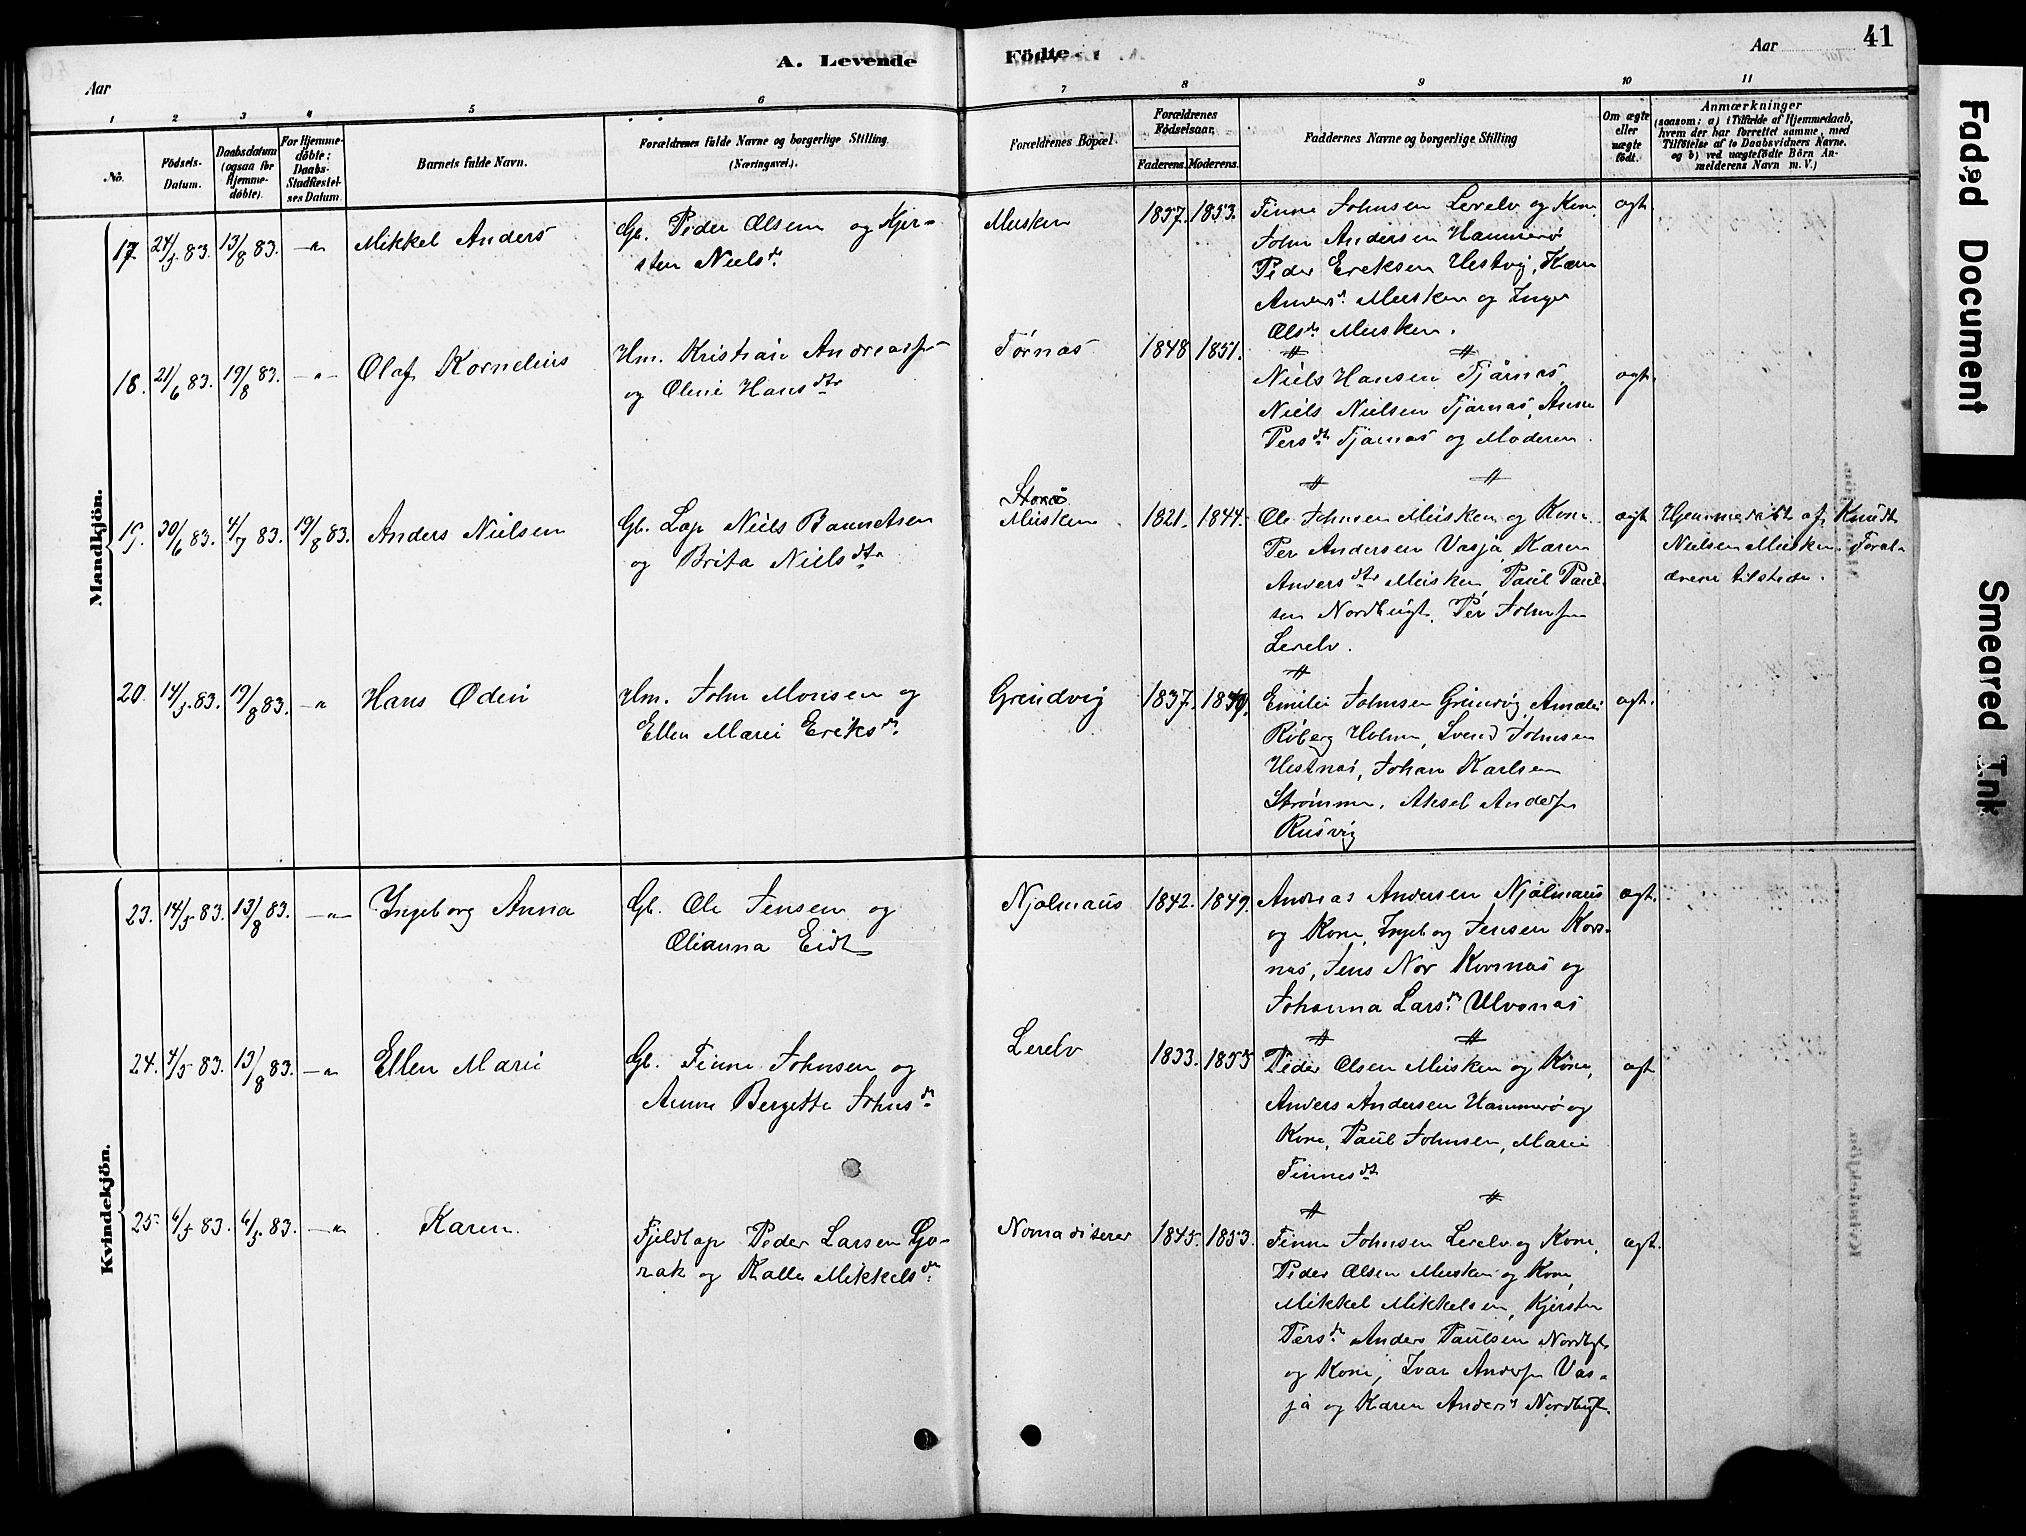 41
A. Levende Födte.
Aar
Aar
1 2 3 4 5 6 7 8 9 10 11
No.
Födsels-Datum.
Daabsdatum (ogsaa for Hjemme-døbte).
For Hjemme-døbte: Daabs-Stadfæstel-ses Datum.
Barnets fulde Navn.
Forældrenes fulde Navne og borgerlige Stilling (Næringsvei).
Forældrenes Bopæl.
Forældrenes Födselsaar.
Faderens. Moderens.
Faddernes Navne og borgerlige Stilling
Om ægte eller uægte født.
Anmærkninger
(saasom: a) i Tilfælde af Hjemmedaab,
hvem der har forrettet samme, med
Tilføielse af to Daabsvidners Navne.
og b) ved uægtefødte Börn An-
melderens Navn m. V.)
Mandkjön.
17. 24/5 83. 13/8 83. –"– Mikkel Anders
Gb. Peder Olsen og Kjer-
sten Niels dr.
Musken 1857. 1853.
Finne Johnsen Lerelv og Kone
John Andersen Hammerö
Peder Eriksen Vestvig, Karn
Anders d. Musken og Inger
Ols dr Musken.
ægt.
18. 21/6 83. 19/8 83. –"– Olaf Kornelius
Hm. Kristian Andreasen
og Oline Hans dtr
Tørnæs 1848 1851.
Niels Hansen Tjärnæs
Niels Nielsen Tjärnæs, Anne
Pers dtr Tjärnæs og Moderen.
ægt.
19. 30/6 83. 4/7 83. 19/8 83. Anders Nielsen
Gb. Lap Niels Baundsen
og Brita Niels dtr
Musken 1821. 1844.
Ole Johnsen Musken og Kone
Per Andersen Vasja Karen
Anders dtr Musken Paul Paul-
sen Nordbugt, Per Johnsen
Lerelv.
ægt
Hjemmedöbt af Knudt
Nielsen Musken. Foræl-
drene tilstede.
20. 14/5 83. 19/8 83. –"– Hans Odin
Hm. John Monsen og
Ellen Marie Eriks dr.
Grindvig 1837.
Emilie Johnsen Grindvig Amalie
Riberg Holmn, Svend Johnsen
Vestnæs, Johan Karlsen
Strømmen, Aksel Andersen
Rusvig
ægt.
Kvindekjön.
23. 14/5 83. 13/8 83. –"– Ingeborg Anna
Gb. Ole Jensen og
Olianna Eidt
Njalmaus 1842. 1849.
Andreas Andersen Njalmaus
og Kone, Ingeborg Jensen Kors-
næs, Jens Nor Korsnæs og
Johanna Lars dr Ulvenæs
ægt.
24. 4/5 83. 13/8 83. –"– Ellen Marie
Gb. Finne Johnsen og
Anne Bergette Johns dr
Lerelv 1833. 1853
Peder Olsen Musken og Kone,
Anders Andersen Hammerö og
Kone, Paul Johnsen, Marie
Finnes dt
ægt
25. 6/5 83. 6/5 83. –"– Karen
Fjeldlap Peder Larsen Go-
rak og Kalle Mikkels dr.
Nomadiserer 1845. 1853.
Finne Johnsen Lerelv og Kone,
Peder Olsen Musken og Kone,
Mikkel Mikkelsen, Kjersten
Pers dr Anders Paulsen Nordbgt
og Kone, Ivar Andersen Vas-
ja og Karen Anders d Nordbugt.
ægt.
Faded Document
Smeared Ink